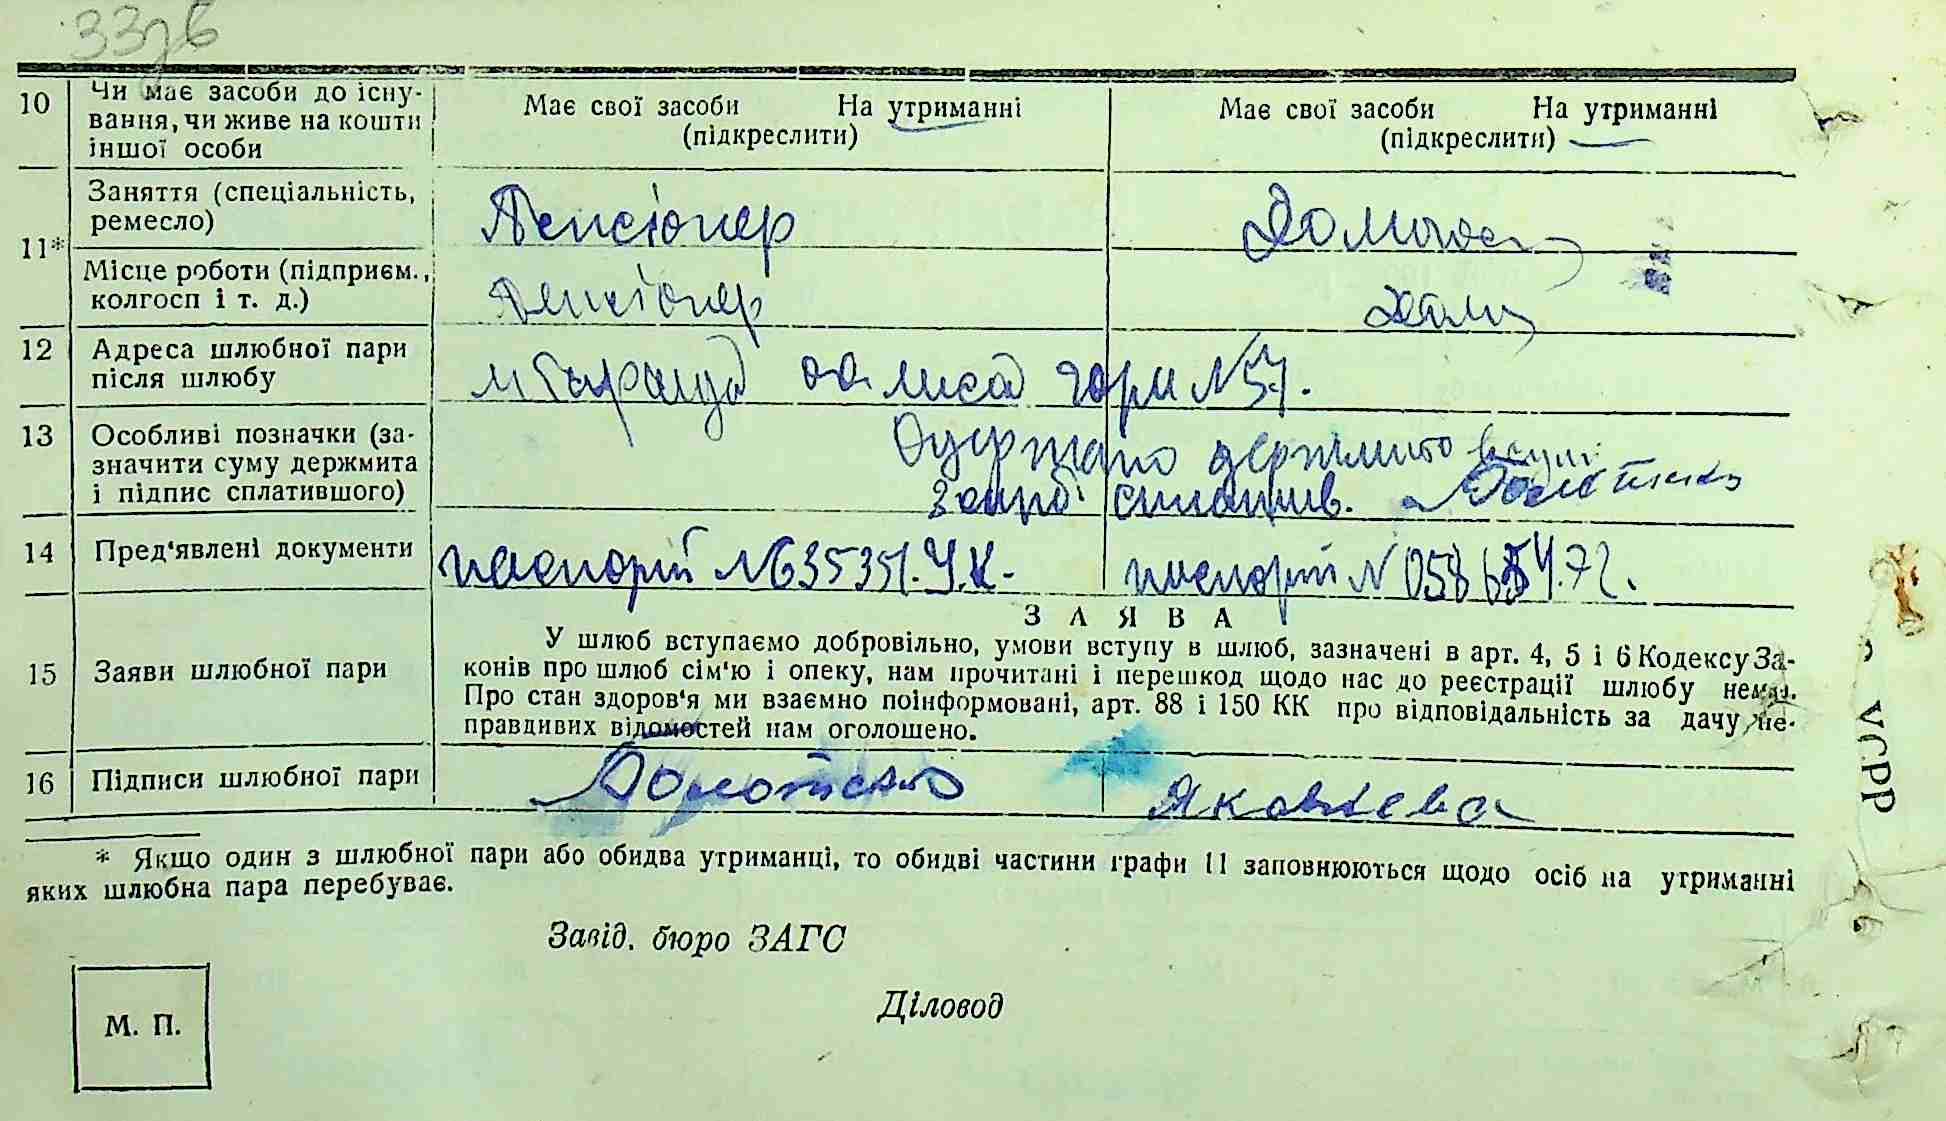 10 Чи має засоби до існу-
вання, чи живе на кошти
іншої особи
Має свої засоби На утриманні
(підкреслити)
Має свої засоби На утриманні
(підкреслити)
11*
Заняття (спеціальність,
ремесло)
Пенсіонер
Місце роботи (підприєм.,
колгосп і т. д.)
Пенсіонер
12 Адреса шлюбної пари
після шлюбу
лиса гори №
13 Особливі позначки (за-
значити суму держмита
і підпис сплатившого)
Одержано держмито
сплатив.
14 Пред'явлені документи
паспорт №635351.У.К.
паспорт №
З А Я В А
15 Заяви шлюбної пари
У шлюб вступаємо добровільно, умови вступу в шлюб, зазначені в арт. 4, 5 і 6 Кодексу За-
конів про шлюб сім'ю і опеку, нам прочитані і перешкод щодо нас до реєстрації шлюбу немає.
Про стан здоров'я ми взаємно поінформовані, арт. 88 і 150 КК про відповідальність за дачу не-
правдивих відомостей нам оголошено.
16 Підписи шлюбної пари
Яковлева
* Якщо один з шлюбної пари або обидва утриманці, то обидві частини графи 11 заповнюються щодо осіб на утриманні
яких шлюбна пара перебуває.
Завід. бюро ЗАГС
Діловод
М. П.
УСРР